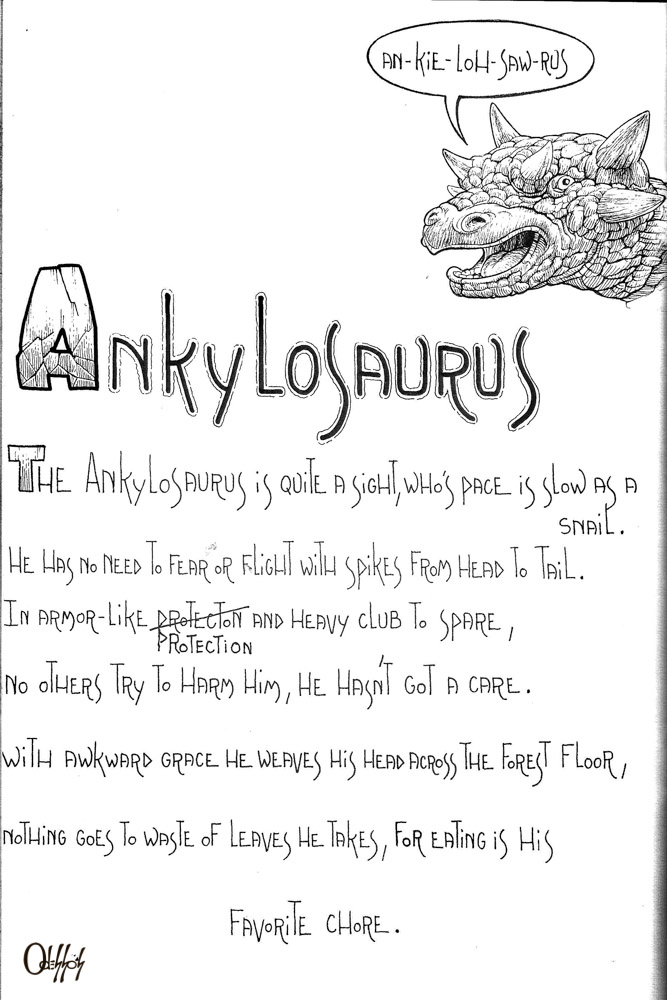 AN-KIE-LOH-SAW-RUS
ANKYLOSAURUS
THE ANKYLOSAURUS IS QUITE A SIGHT, WHO'S PACE IS SLOW AS A
SNAIL.
HE HAS NO NEED TO FEAR OR FLIGHT WITH SPIKES FROM HEAD TO TAIL.
IN ARMOR-LIKE PROTECTON AND HEAVY CLUB TO SPARE,
PROTECTION
NO OTHERS TRY TO HARM HIM, HE HASN'T GOT A CARE.
WITH AWKWARD GRACE HE WEAVES HIS HEAD ACROSS THE FOREST FLOOR,
NOTHING GOES TO WASTE OF LEAVES HE TAKES, FOR EATING IS HIS
FAVORITE CHORE.